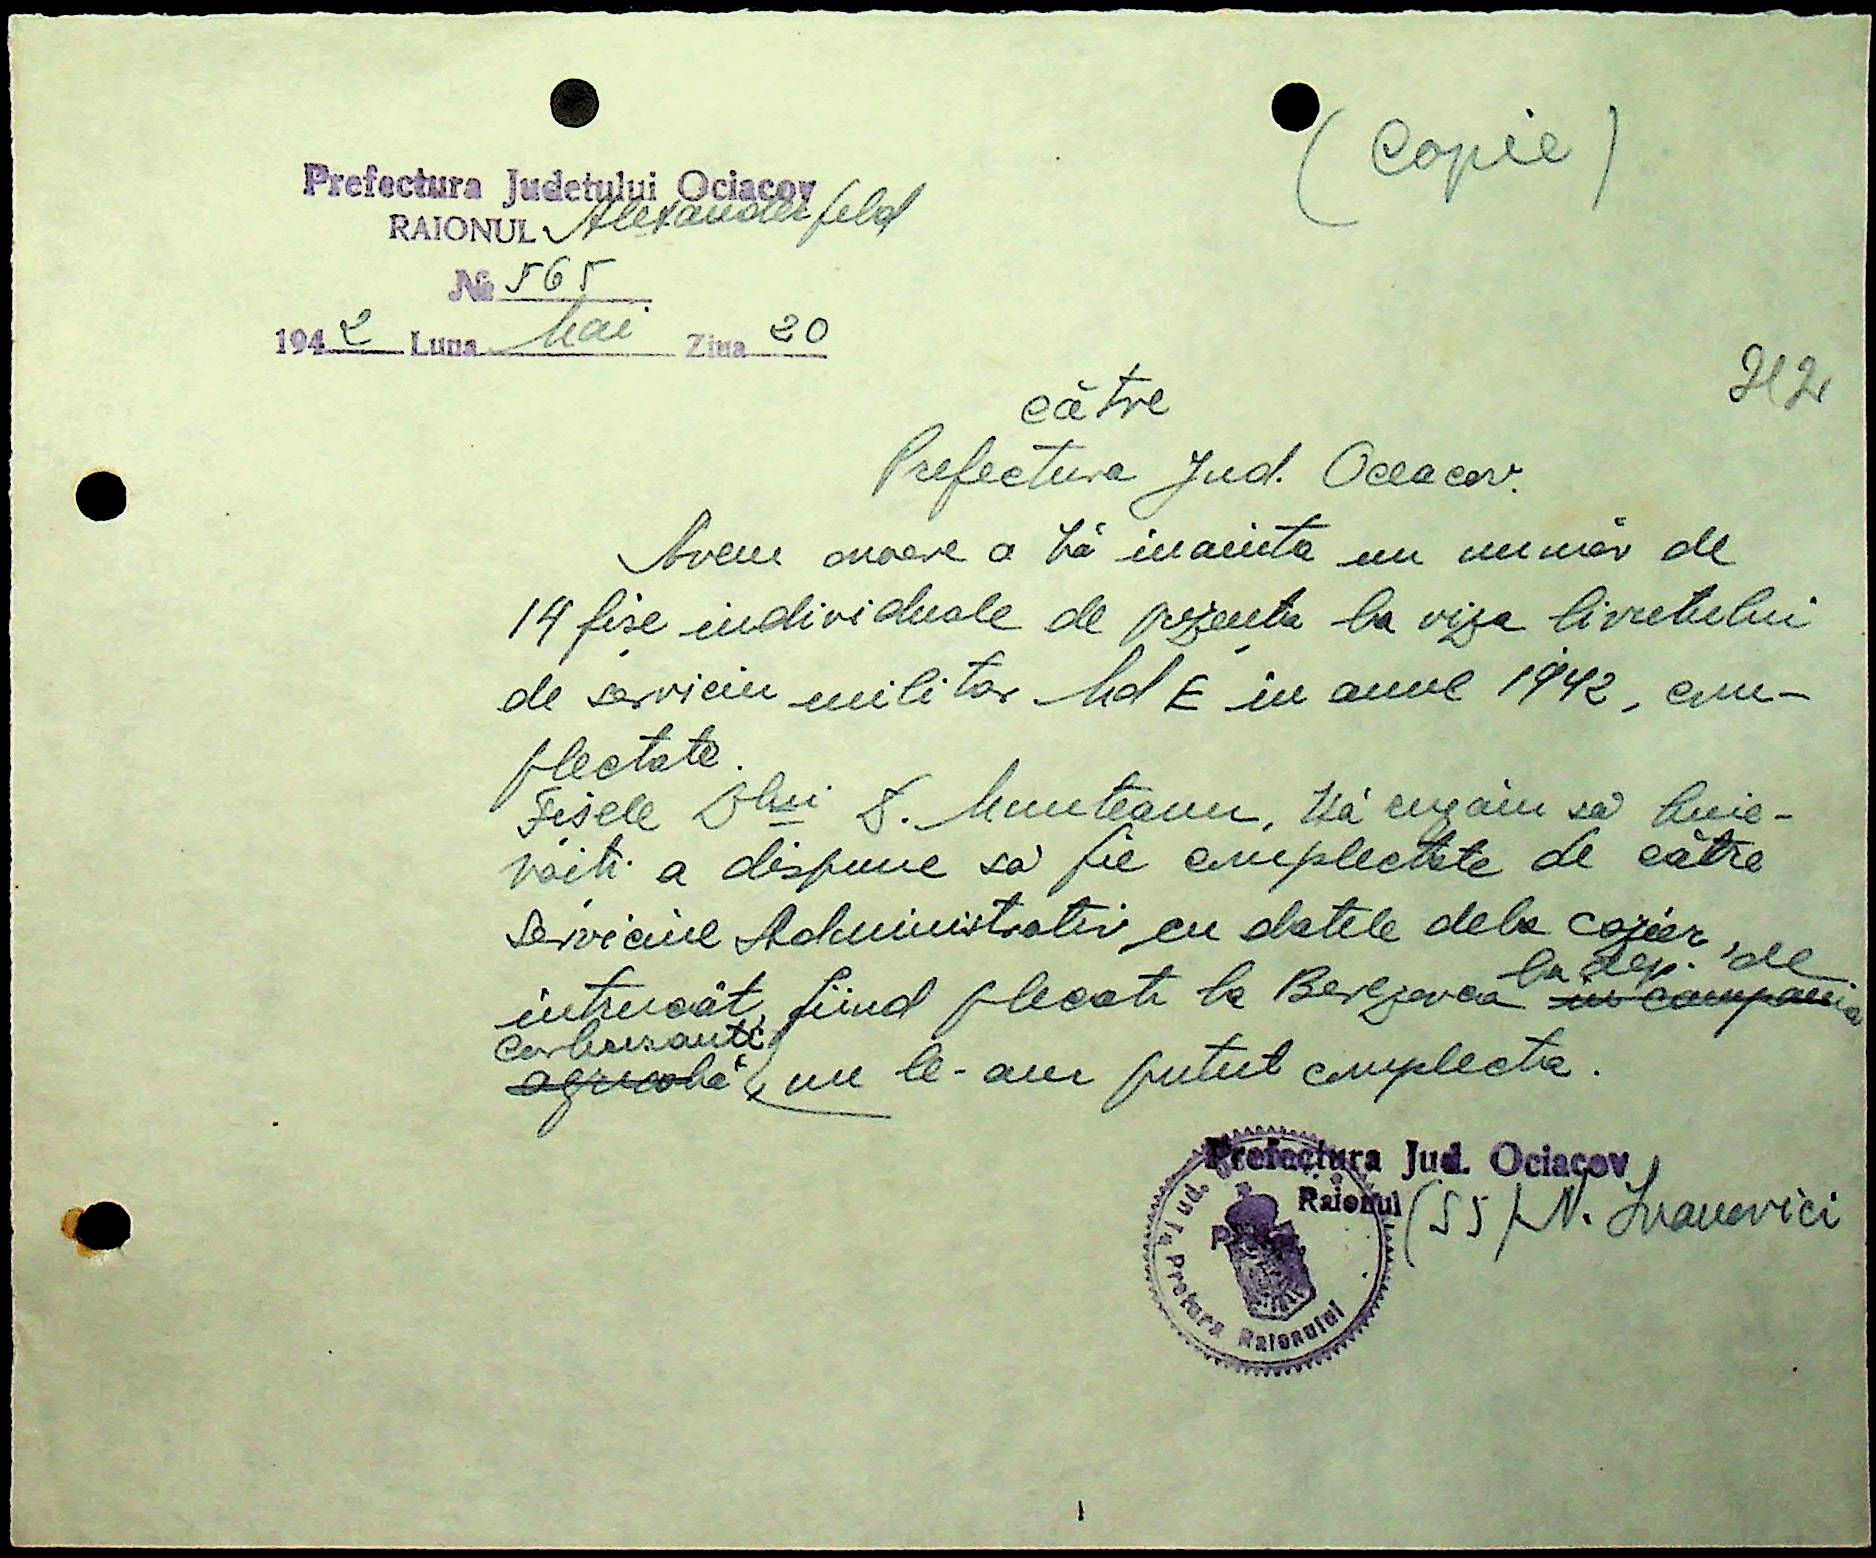 (Copie)
Prefectura Judetului Ociacov
RAIONUL Alexanderfeld
№ 565
1942 Luna Mai Ziua 20
212
către
Prefectura Jud. Oceacov.
Avem onoare a Vă inainta un număr de
14 fişe individuale de prezenta la viza livretului
de serviciu militar Md E in anul 1942, com-
plectate.
Fişele Dlui D. Munteanu, Vă rugăm să bine-
voiti a dispune să fie complectate de către
Serviciul Administrativ cu datele dela cazier,
la dep. de
intrucât, fiind plecati la Berezovca in campania
carburanti
agricolă, nu le-am putut complecta.
Prefectura Jud. Ociacov
Raionul (ss) N. Ivanovici
Jud. Pretura Raionului